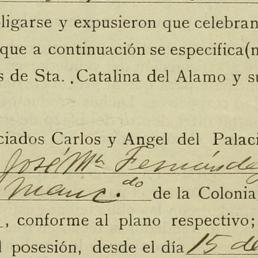 oligarse y expusieron que celebran
que a continuación se especifica(n
s de Sta. Catalina del Alamo y su
ciados Carlos y Angel del Palaci
José Ma. Fernández
Manc.do de la Colonia
, conforme al plano respectivo;
l posesión, desde el día 15 de